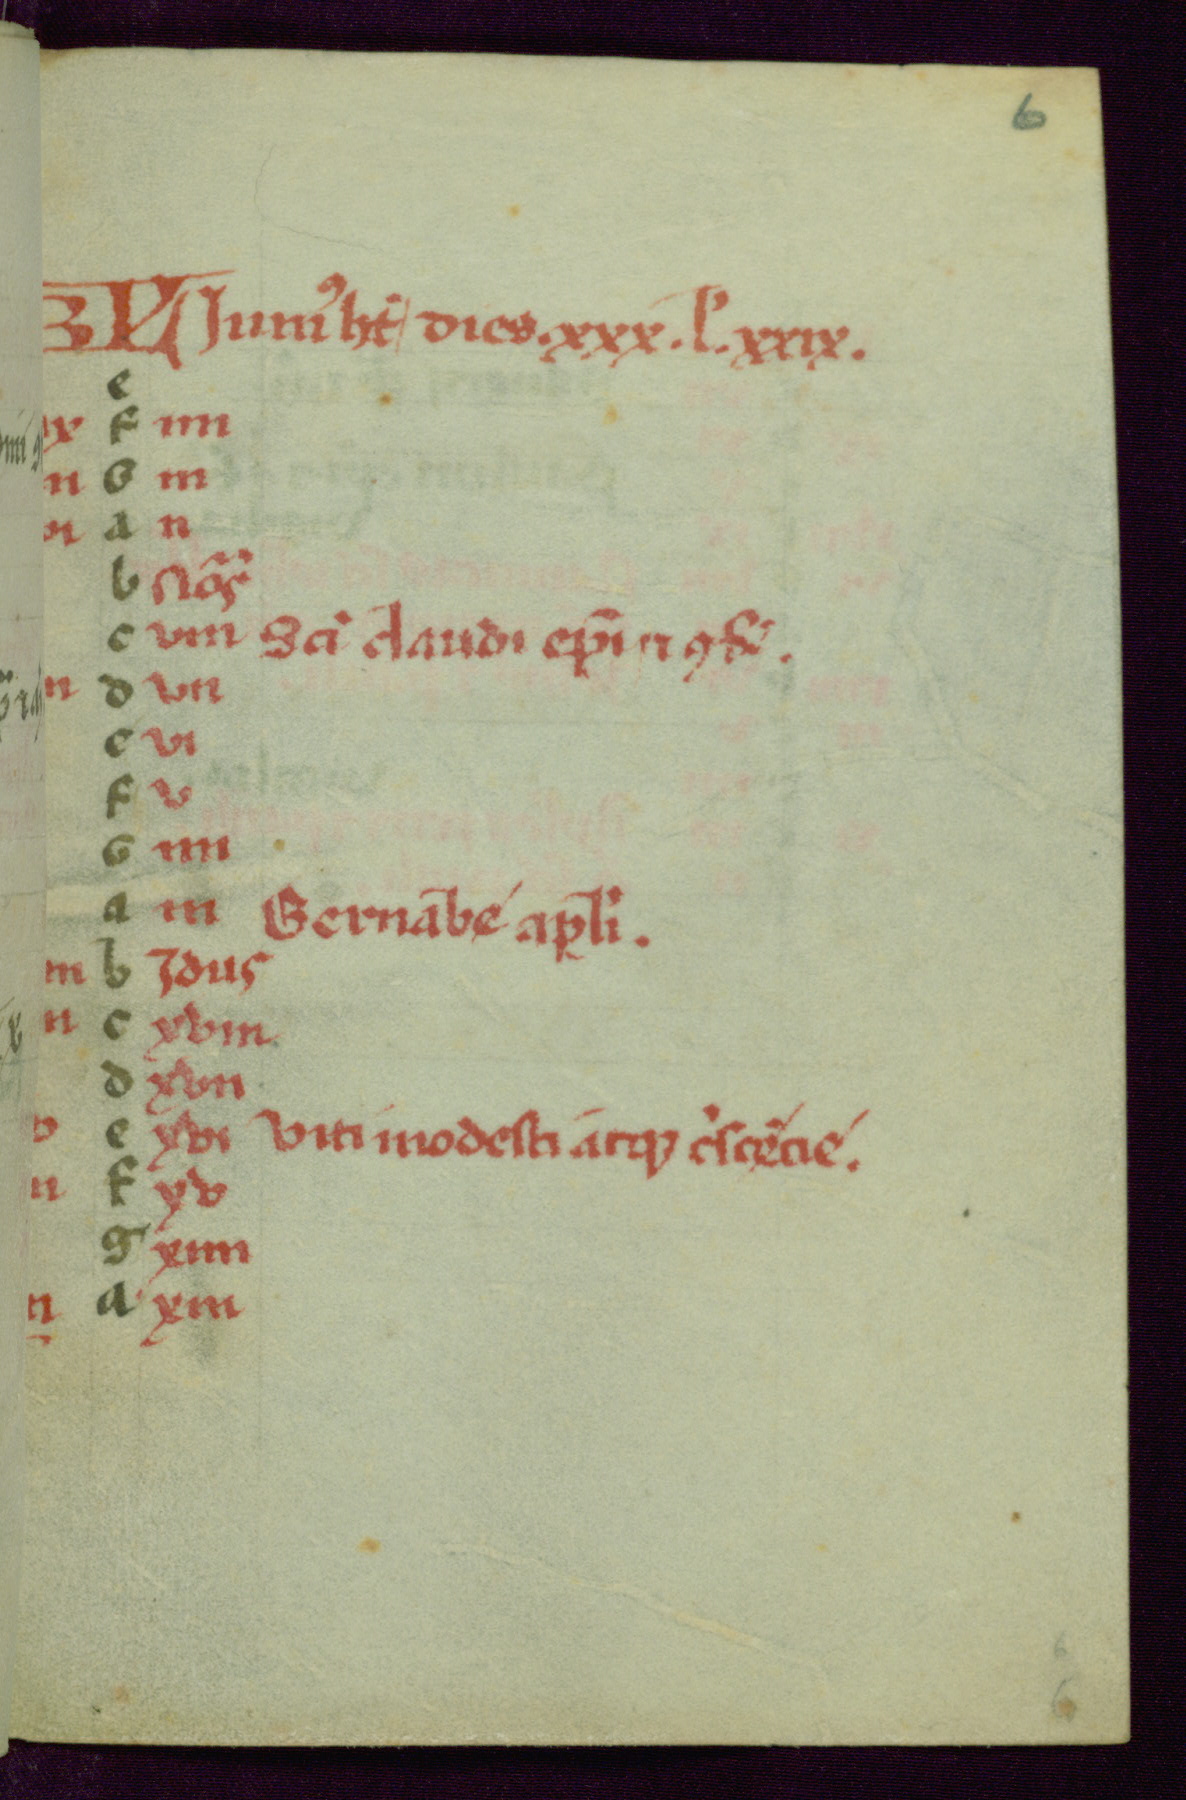 6
KL Juni᷒ hēt dies. xxx. l'. xxix.
e
f iiii
G iii
a ii
b
c viii Sci claudi epi
d vii
e vi
f v
G iiii
a iii Bernābe apli.
b Idus
c xviii
d xvii
e xvi Viti modesti atq
f xv
g xiiii
a xiii
6
6